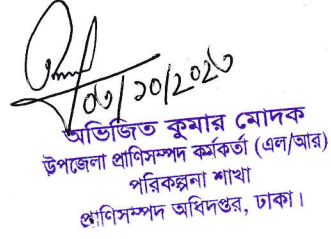 ০৩/১০/২০২৩
অভিজিত কুমার মোদক
উপজেলা প্রাণিসম্পদ কর্মকর্তা (এল/আর)
পরিকল্পনা শাখা
প্রাণিসম্পদ অধিদপ্তর, ঢাকা।